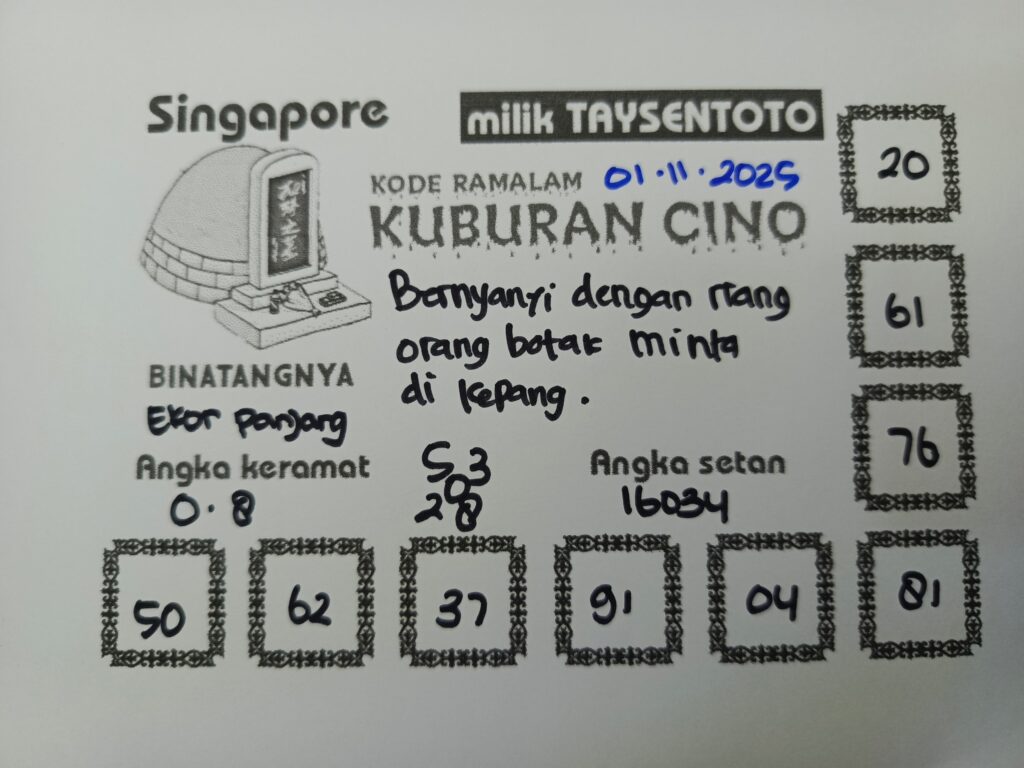 Singapore
milik TAYSENTOTO
KODE RAMALAM 01.11.2025
KUBURAN CINO
Bernyanyi dengan riang
orang botak minta
di kepang.
BINATANGNYA
Ekor panjang
Angka keramat
0.8
5 3
0
2 8
Angka setan
16034
20
61
76
50
62
37
91
04
81